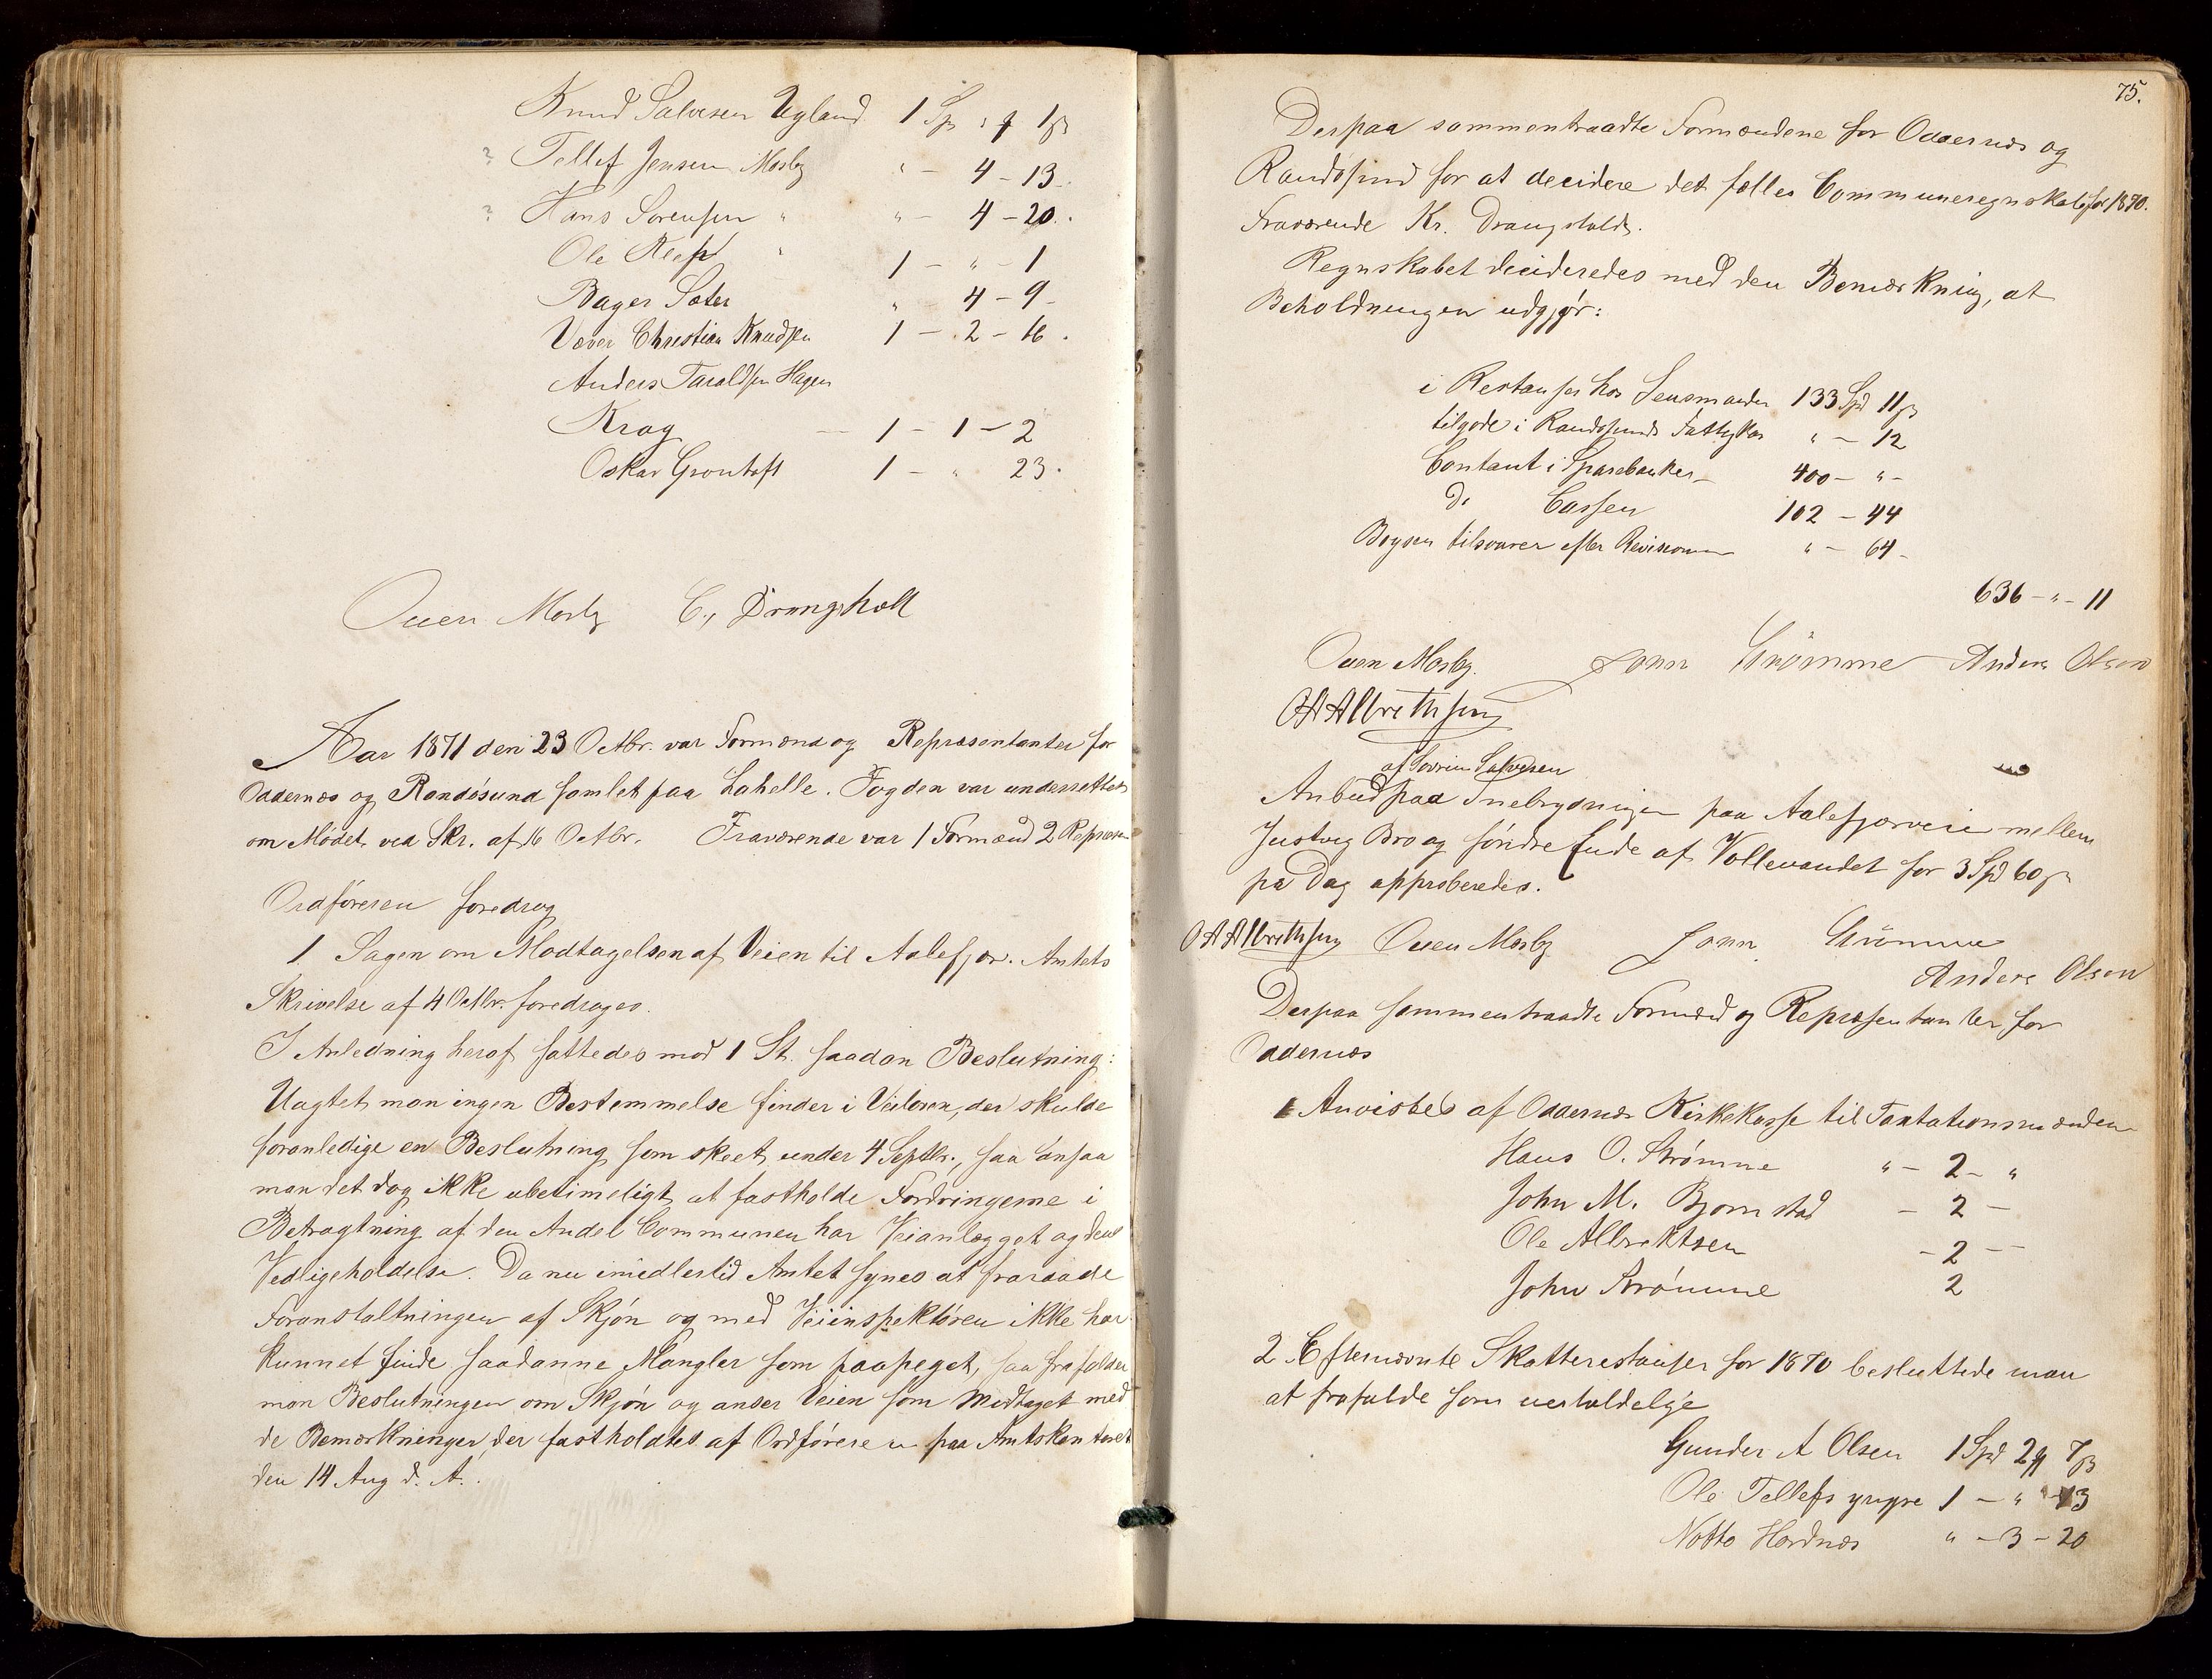 Knud Salvesen Ugland 1 Sp " ϥ 1 ß
? Tellef Jensen Mosby " - 4 - 13
? Hans Sørensen " " - 4 - 20
Ole Kleps " 1 - " - 1
Bager Sæter " 4 - 9 -
Væver Christian Knudsen 1 - 2 - 16.
Anders Taraldsen Hagen
Krag - 1 - 1 - 2
Oskar Grontoft 1 - " 23.
Ouen Mosby C., Drangsholt
Aar 1871 den 23 Octbr. var Formænd og Repræsentanter for
Oddernæs og Randøsund samlet paa Lahelle. Fogden var underrettet
om Mødet ved Skr. af 16 Octbr. Fraværende var 1 Formænd 2 Repræsen
Ordføreren foredrog
1 Sagen om Modtagelsen af Veien til Aalefjær. Amtets
Skrivelse af 4 Octbr. foredroges.
I Anledning heraf fattedes mod 1 St. saadan Beslutning:
Uagtet man ingen Bestemmelse finder i Veiloven, der skulde
foranledige en Beslutning som skeet under 4 Septbr., saa ansaa
man det dog ikke ubetimeligt at fastholde Fordringerne i
Betragtning af den Andel Communen har i Veianlægget og dens
Vedligeholdelse. Da nu imidlertid Amtet synes at fraraade
Foranstaltningen af Skjøn og med Veiinspektøren ikke har
kunnet finde saadanne Mangler som paapeget, saa frafalder
man Beslutningen om Skjøn og anser Veien som modtaget med
de Bemærkninger, der fastholdtes af Ordføreren paa Amtskontoret
den 14 Aug d. A.
75.
Derpaa sammentraadte Formændene for Oddernæs og
Randøsund for at decidere det fælles Communeregnskab for 1870.
Fraværende Kr. Drangsholdt.
Regnskabet decideredes med den Bemærkning, at
Beholdningen udgjør:
i Restanser hos Lensmanden 133 Spd 11 ß
tilgode i Randøsunds Fattigkas " - 12
Contant i Sparebanken - 400 - " -
Do Cassen 102 - 44
Boysen tilsvarer efter Revisionen " - 64 -
636 - " - 11
Ouen Mosby. John Strömme Anders Olsen
OA Albrethsen
af Sørren Salvesen
Anbud paa Snebrydningen paa Aalefjærveien mellem
Justvig Bro og søndre Ende af Vollevandet for 3 Spd 60 ß
pr Dag approberedes.
OA Albrethsen Ouen Mosby John Strömme
Anders Olsen
Derpaa sammentraadte Formænd og Repræsentanter for
Oddernæs
1 Anvistes af Oddernæs Kirkekasse til Taxtationsmænden
Hans O. Strømme " - 2 - "
John M. Bjornstad - 2 -
Ole Albrektsen - 2 -
John Strømme 2
2 Efternævnte Skatterestanser for 1870 besluttede man
at frafalde som uerholdelige
Gunder A Olsen 1 Spd 2 ϥ 7 ß
Ole Tellefs yngre 1 - " - 13
Notto Hordnæs " - 3 - 20